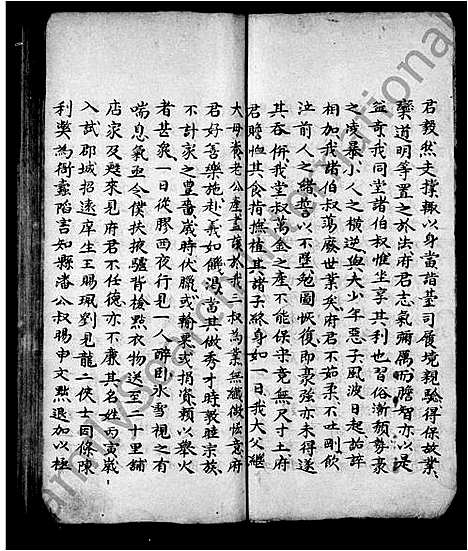 君毅然支撐輙以身當諸臺司履境親驗得保故業
藥道明等置之於法府君志氣彌厲而膽智亦以是
益奇我同堂諸伯叔惟坐享其利也習俗漸頹勢豪
之凌暴小人之橫逆與夫少年惡子風波日起詬誶
相加我諸伯叔蕩廢世業矣府君不茹柔不吐剛飲
泣前人之緒撘以不墜勉圖恢復即豪強亦未得遂
其吞併我堂叔萬金之產不能保守竟無尺寸土府
君贍恤其食指撫植其諸子終身如一日我大父繼
大母養老公產盡議於我三叔為業無纖微怪意府
君好善樂施赴義如饑渴當其做秀才時敦睦宗族
不計家之豐嗇歲時伏臘或輸粟或捐資賴以舉火
者甚眾一日從膠西夜行見一人醉臥氷雪視之有
喘息氣亟令僕扶掖驢背檢點衣物送至二十里舖
店家及甦來見府君不任德亦不廉其名姓戊寅歲
入試郡城招遠庠生王賜珮劉見龍二俠士因條陳
利樊為衙蠧陷害知縣潘公叔賜申文黜退加以極